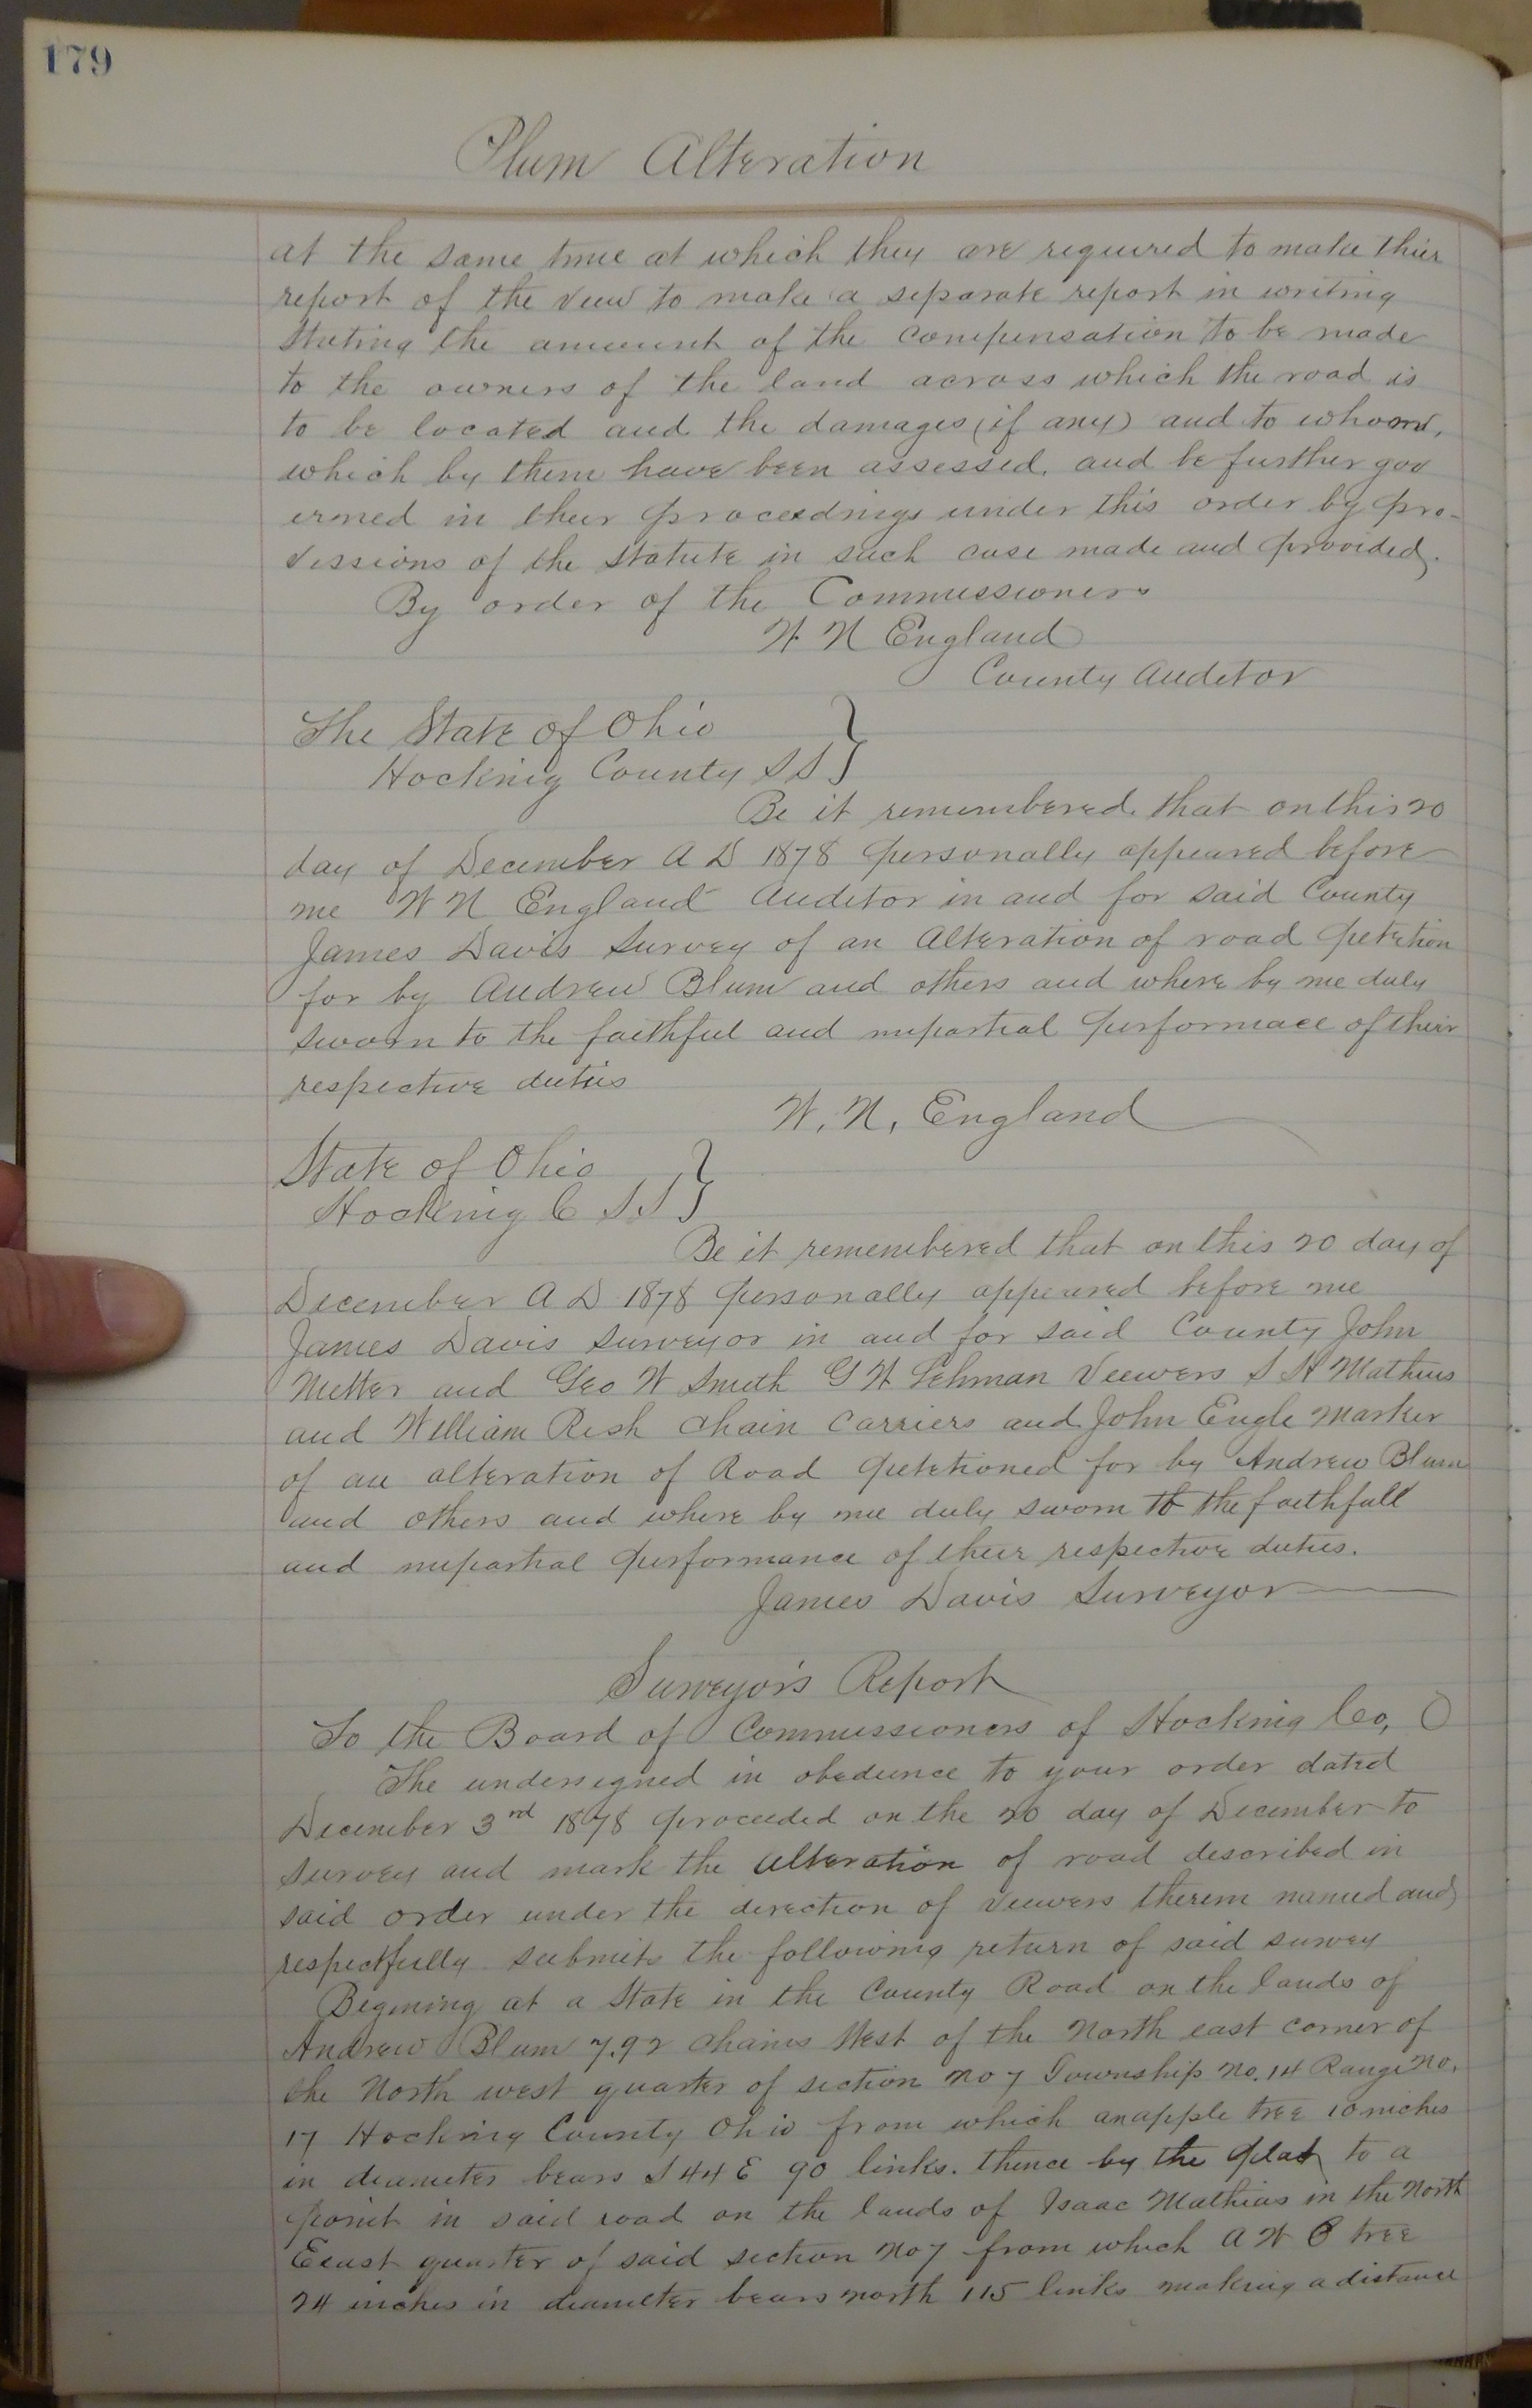 179
Plum Alteration
at the same time at which they are required to make thier
report of the view to make a separate report in writing
Stating the amount of the compensation to be made
to the owners of the land across which the road is
to be located and the damages (if any) and to whom,
which by them have been assessed, and be further gov
erned in their proceedings under this order by pro-
vissions of the statute in such case made and provided.
By order of the Commissioners
W N England
County Auditor
The State of Ohio }
Hocking County SS }
Be it remembered that on this 20
day of December A D 1878 personally appeared before
me W N England Auditor in and for said County
James Davis Survey of an Alteration of road petition
for by Andrew Blum and others and where by me duly
sworn to the faithful and impartial performace of their
respective duties
W. N. England
State of Ohio }
Hocking C S.S }
Be it remembered that on this 20 day of
December A D 1878 personally appeared before me
James Davis surveyor in and for said County John
and Geo W Smith G W Lehman Viewers S H Mathius
and William Rish Chain Carriers and John Engle Marker
of an alteration of Road petetioned for by Andrew Blum
and others and where by me duly sworn to the faithfull
and impartial performance of their respective duties.
James Davis Surveyor
Surveyor's Report
To the Board of Commissioners of Hocking Co, O
The undersigned in obedience to your order dated
December 3rd 1878 proceeded on the 20 day of December to
survey and mark the Alteration of road described in
said order under the direction of viewers therein named and
respectfully submits the following return of said survey
Begining at a State in the County Road on the lands of
Andrew Blum 7.92 chains West of the North east corner of
the North west quarter of section No 7 Township No. 14 Range No.
17 Hocking County Ohio from which an apple tree 10 inches
in diameter bears S 44 E 90 links. thence by the plat to a
point in said road on the lands of Isaac Mathias in the North
Eeast quarter of said section No 7 from which A W O tree
24 inches in diameter bears north 115 links making a distance